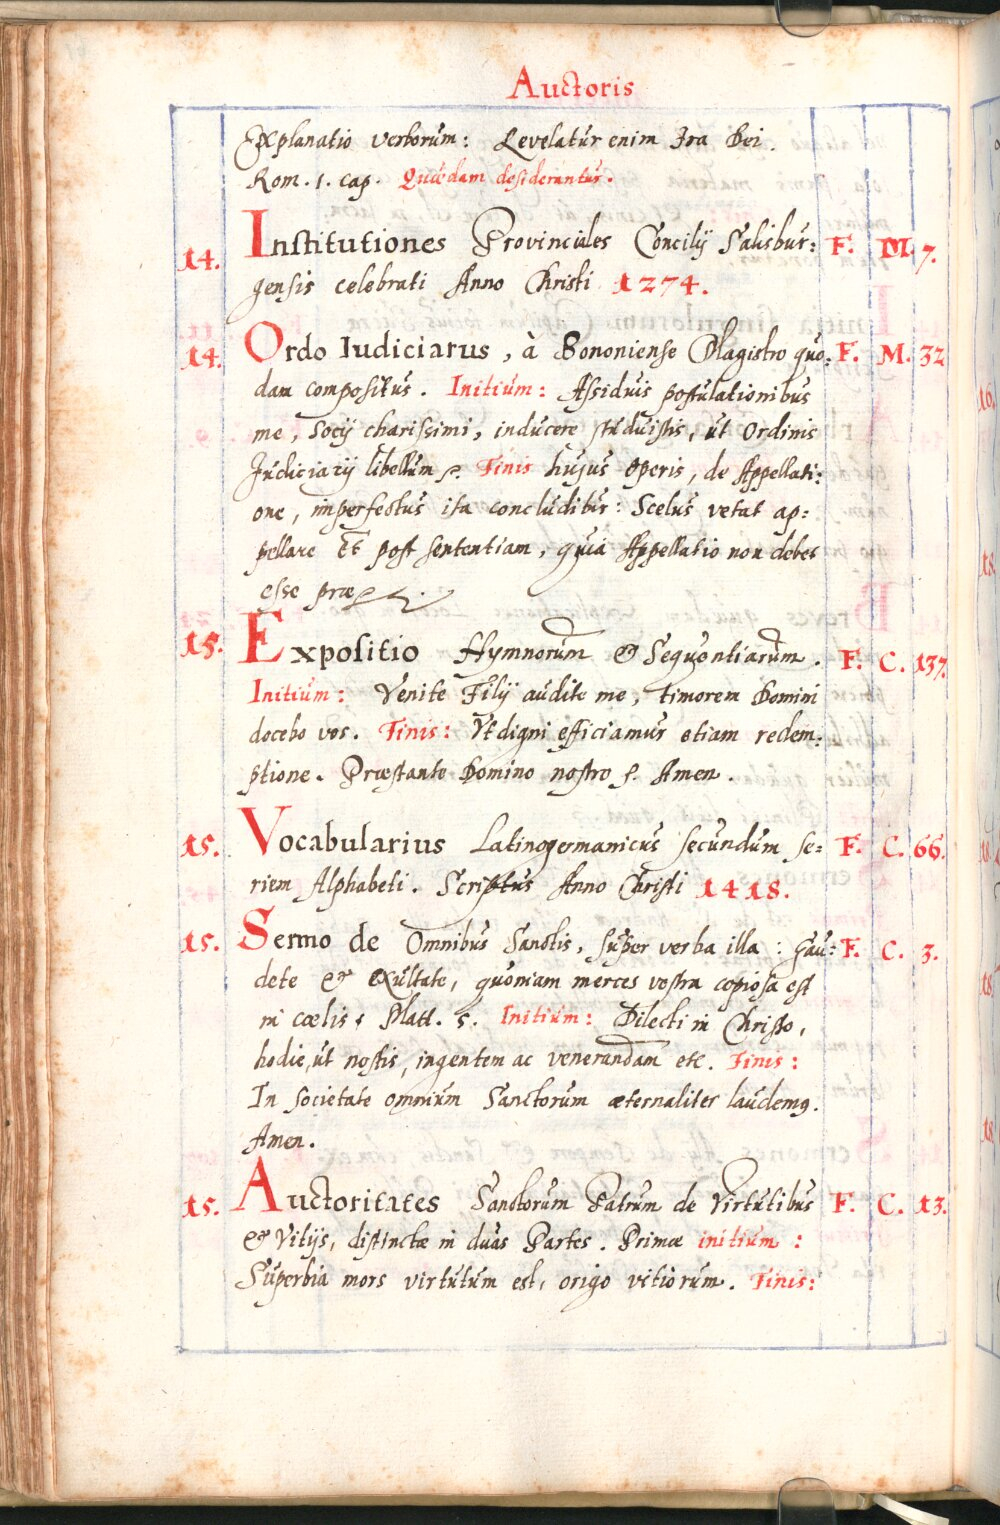 Auctoris
Explanatio verborum: Revelatur enim Ira Dei.
Rom. 1. cap. Quædam desiderantur.
14. Institutiones Provinciales Concilij Salisbur: F. M. 7.
gensis celebrati Anno Christi 1274.
14. Ordo Iudiciarus, à Bononiense Magistro quo: F. M. 32
dam compositus. Initium: Assiduis postulationibus
me, Socij charissimi, inducere studuistis, ut Ordinis
Judiciarij libellum Finis hujus operis, de Appellati:
one, imperfectus ita concluditur: Scelus vetat ap:
pellare Et post sententiam, quia Appellatio non debet
esse præ
15. Expositio Hymnorum & Sequentiarum. F. C. 137.
Initium: Venite Filij audite me, timorem Domini
docebo vos. Finis: Vt digni efficiamur etiam redem:
ptione. Præstante Domino nostro Amen.
15. Vocabularius Latinogermanicus secundum se: F. C. 66.
riem Alphabeti. Scriptus Anno Christi 1418.
15. Sermo de Omnibus Sanctis, super verba illa: Gau: F. C. 3.
dete & exultate, quoniam merces vestra copiosa est
in cœlis. Matt. 5. Initium: Dilecti in Christo,
hodie, ut nostis, ingentem ac venerandam etc. Finis:
In societate omnium Sanctorum æternaliter laudemq.
Amen.
15. Auctoritates Sanctorum Patrum de Virtutibus F. C. 13.
& Vitijs, distinctæ in duas Partes. Primæ initium:
Superbia mors virtutum est, origo vitiorum. Finis: